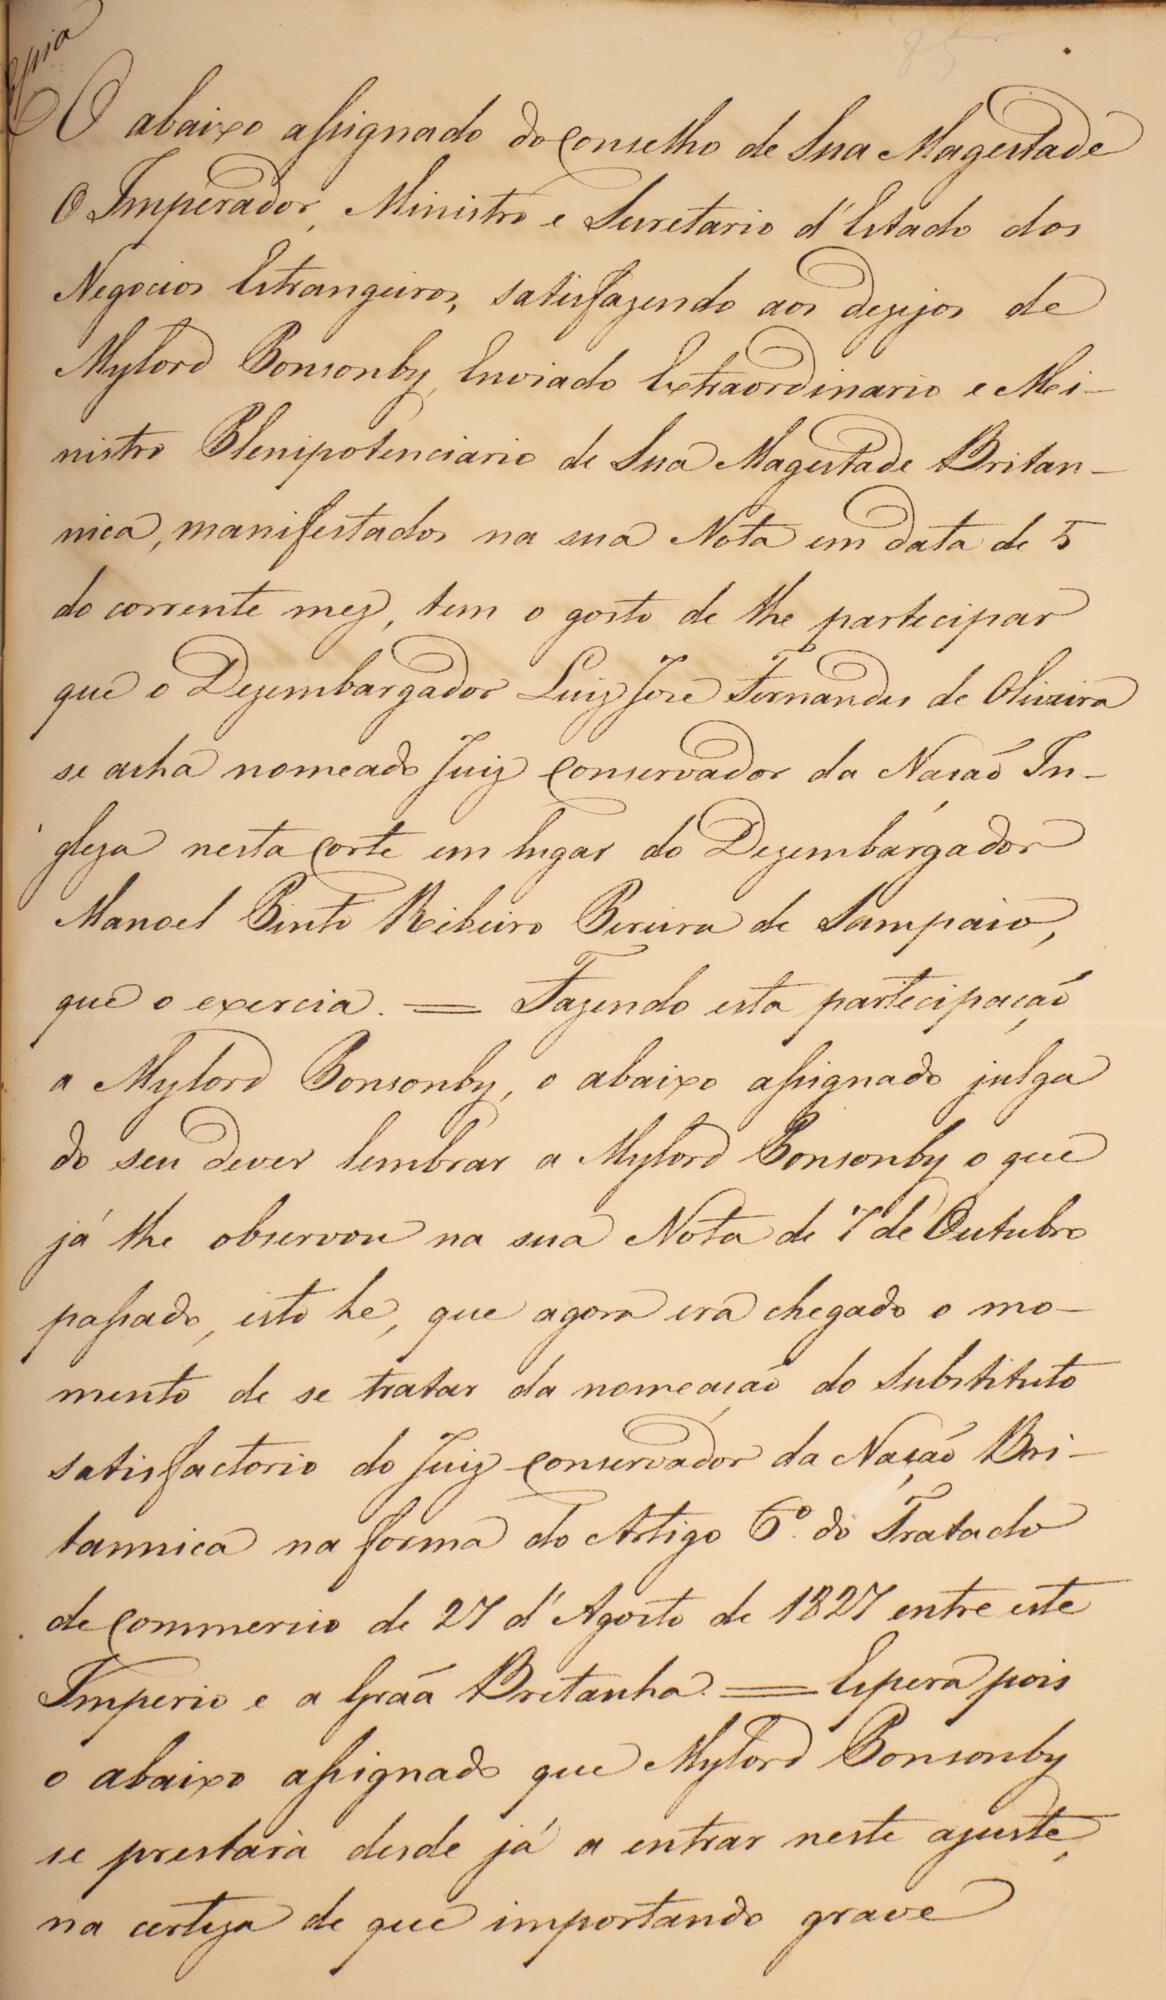 Copia
85
O abaixo assignado do Conselho de Sua Magestade
O Imperador, Ministro e Secretario d'Estado dos
Negocios Estrangeiros, satisfazendo aos dezejos de
Mylord Ponsonby, Enviado Extraordinario e Mi-
nistro Plenipotenciario de Sua Magestade Britan-
nica, manifestados na sua Nota em data de 5
do corrente mez, tem o gosto de lhe participar
que o Dezembargador Luiz José Fernandes de Oliveira
se acha nomeado Juiz Conservador da Nação In-
gleza nesta Corte em lugar do Dezembargador
Manoel Pinto Ribeiro Pereira de Sampaio,
que o exercia. = Fazendo esta participação
a Mylord Ponsonby, o abaixo assignado julga
do seu dever lembrar a Mylord Ponsonby o que
já lhe observou na sua Nota de 7 de Outubro
passado, isto he, que agora era chegado o mo-
mento de se tratar da nomeação do Substituto
satisfactorio do Juiz Conservador da Nação Bri-
tannica na forma do Artigo 6º do Tratado
de Commercio de 27 d'Agosto de 1827 entre este
Imperio e a Grãa Bretanha. = Espera pois
o abaixo assignado que Mylord Ponsonby
se prestará desde já a entrar neste ajuste,
na certeza de que importando grave